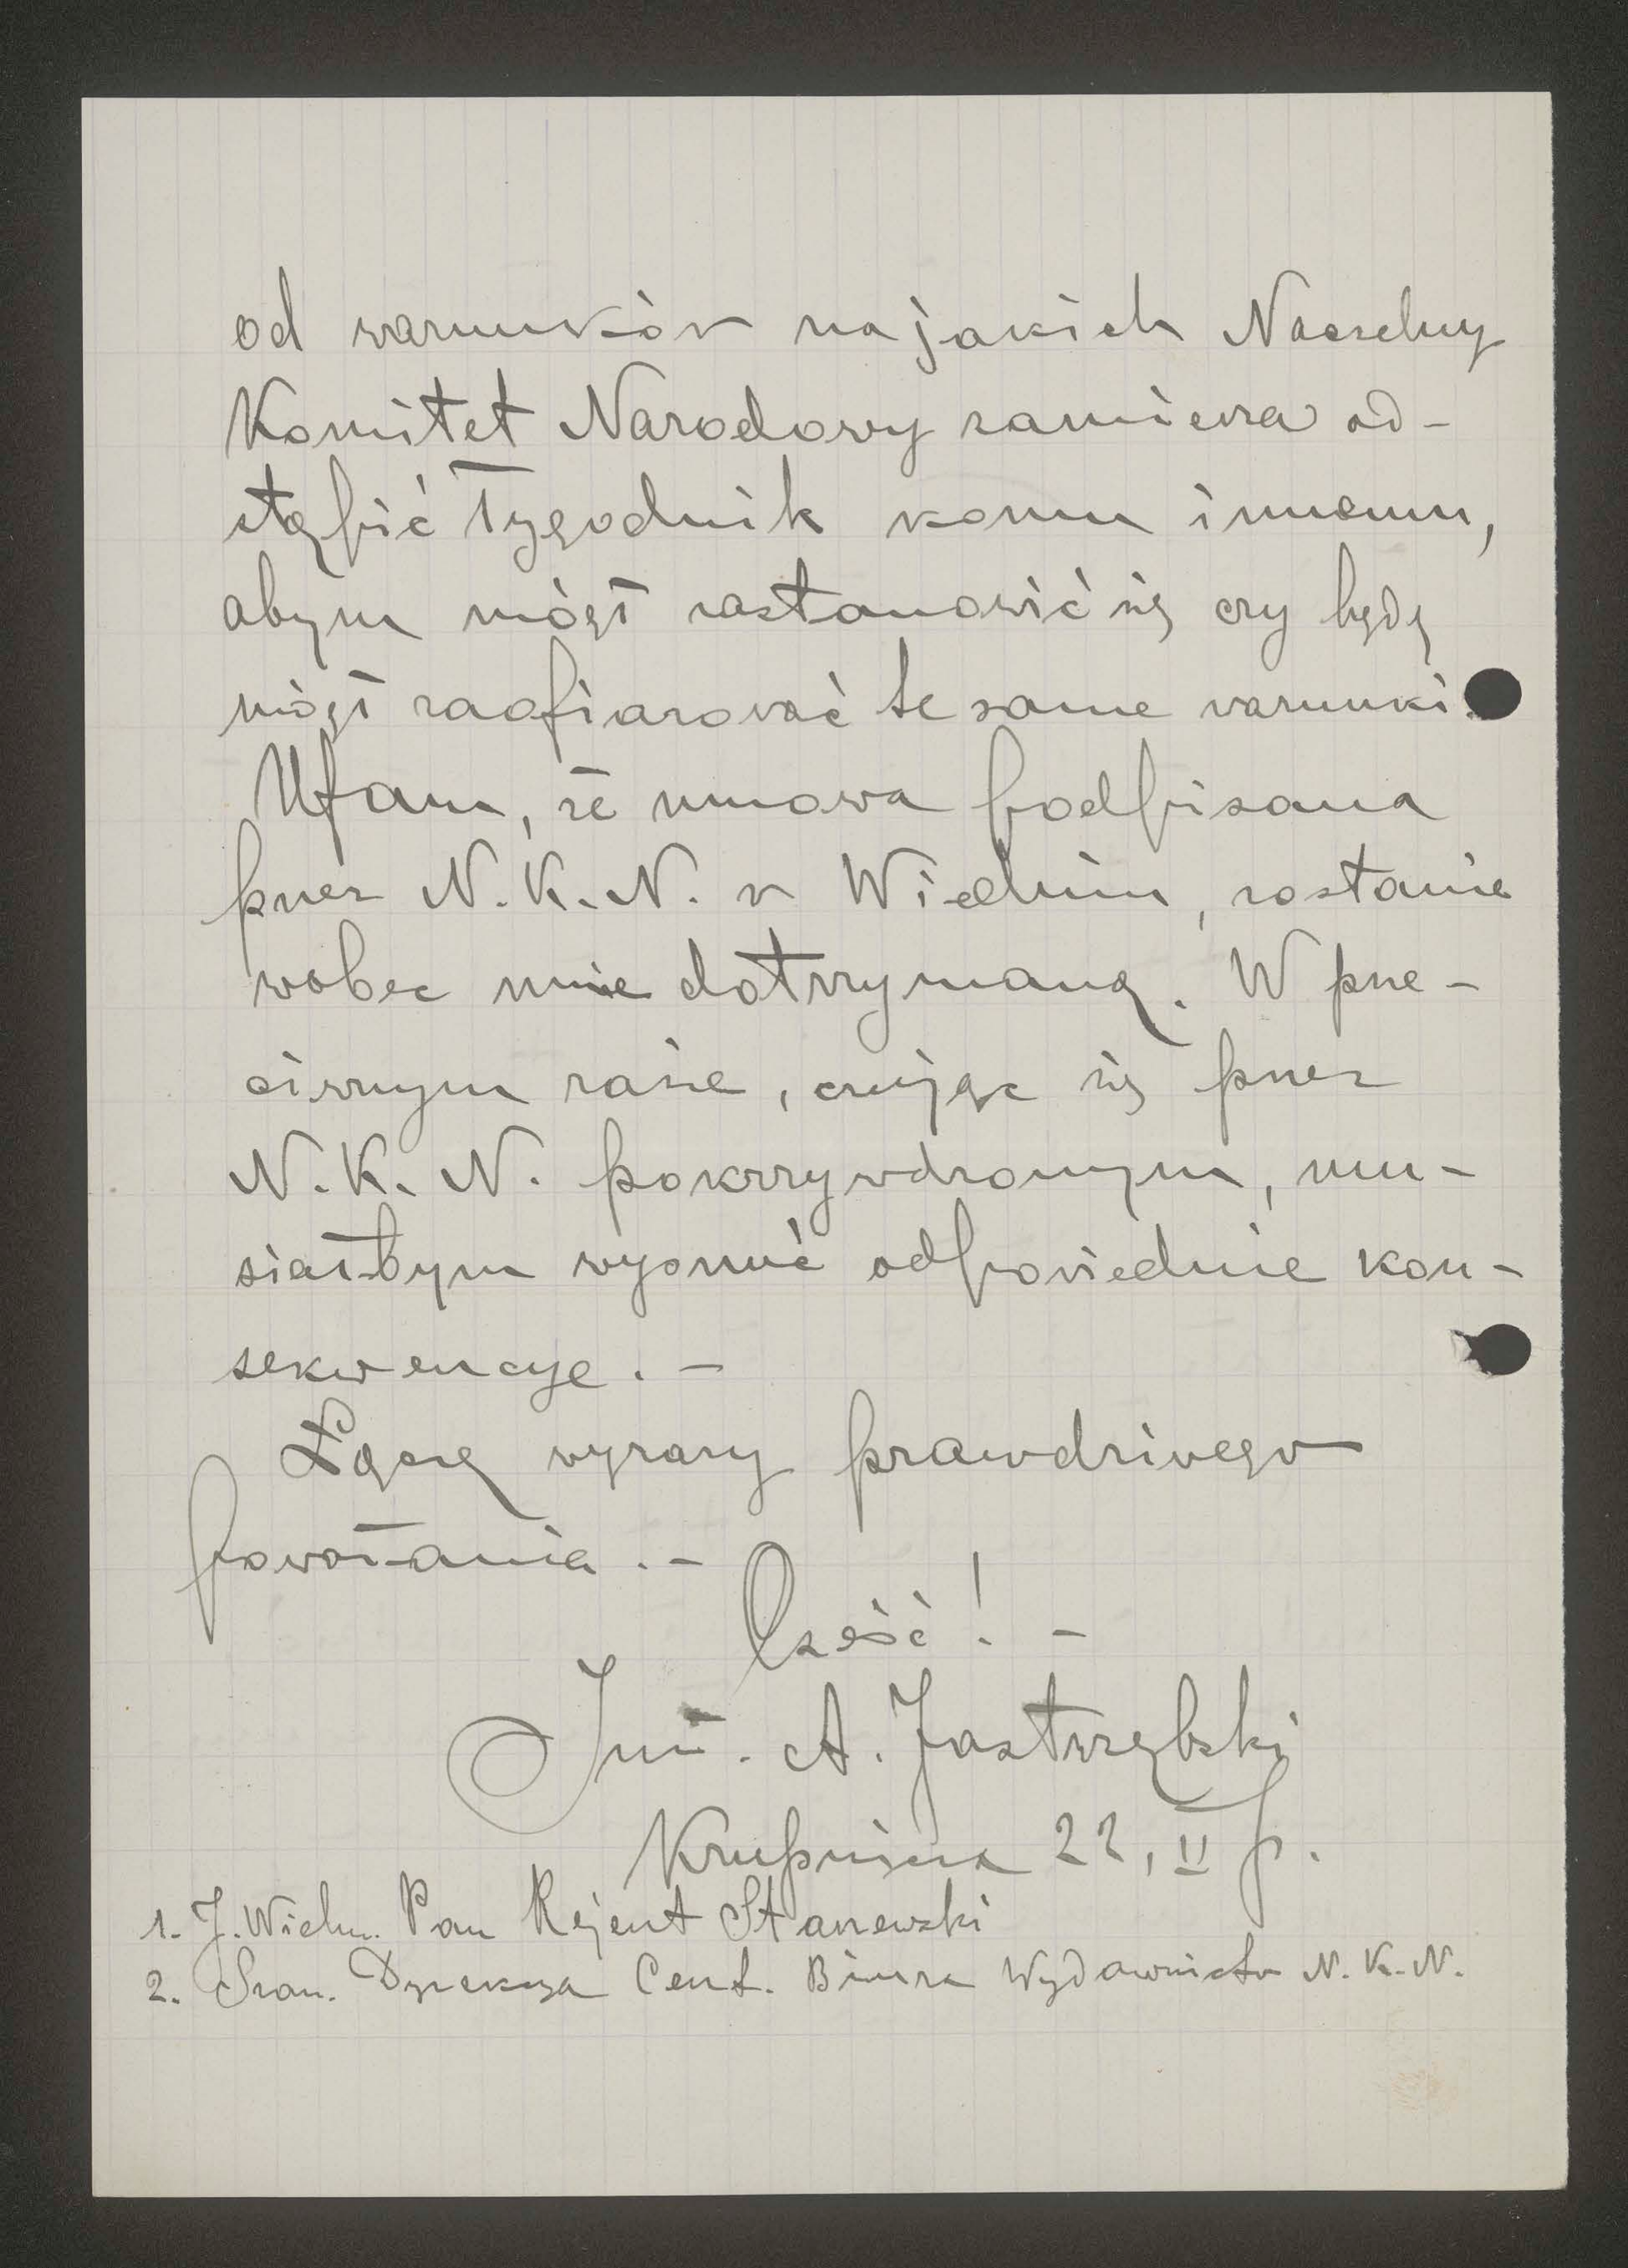 od warunków na jakich Naczelny
Komitet Narodowy zamierza od-
stąpić Tygodnik komu innemu,
abym mógł zastanowić się czy będę
mógł zaofiarować te same warunki.
Ufam, że umowa podpisana
przez N.K.N. w Wiedniu, zostanie
wobec mnie dotrzymaną. W prze-
ciwnym razie, czując się przez
N.K.N. pokrzywdzonym, mu-
siałbym wysnuć odpowiednie kon-
sekwencye. -
Łączę wyrazy prawdziwego
powołania. -
Cześć! -
Inż. A. Jastrzębski
Krupnicza 22, II p.
1. J. Wielm. Pan Rejent Staniewski
2. Szan. Dyrekcya Cent. Biura Wydawnictw N.K.N.